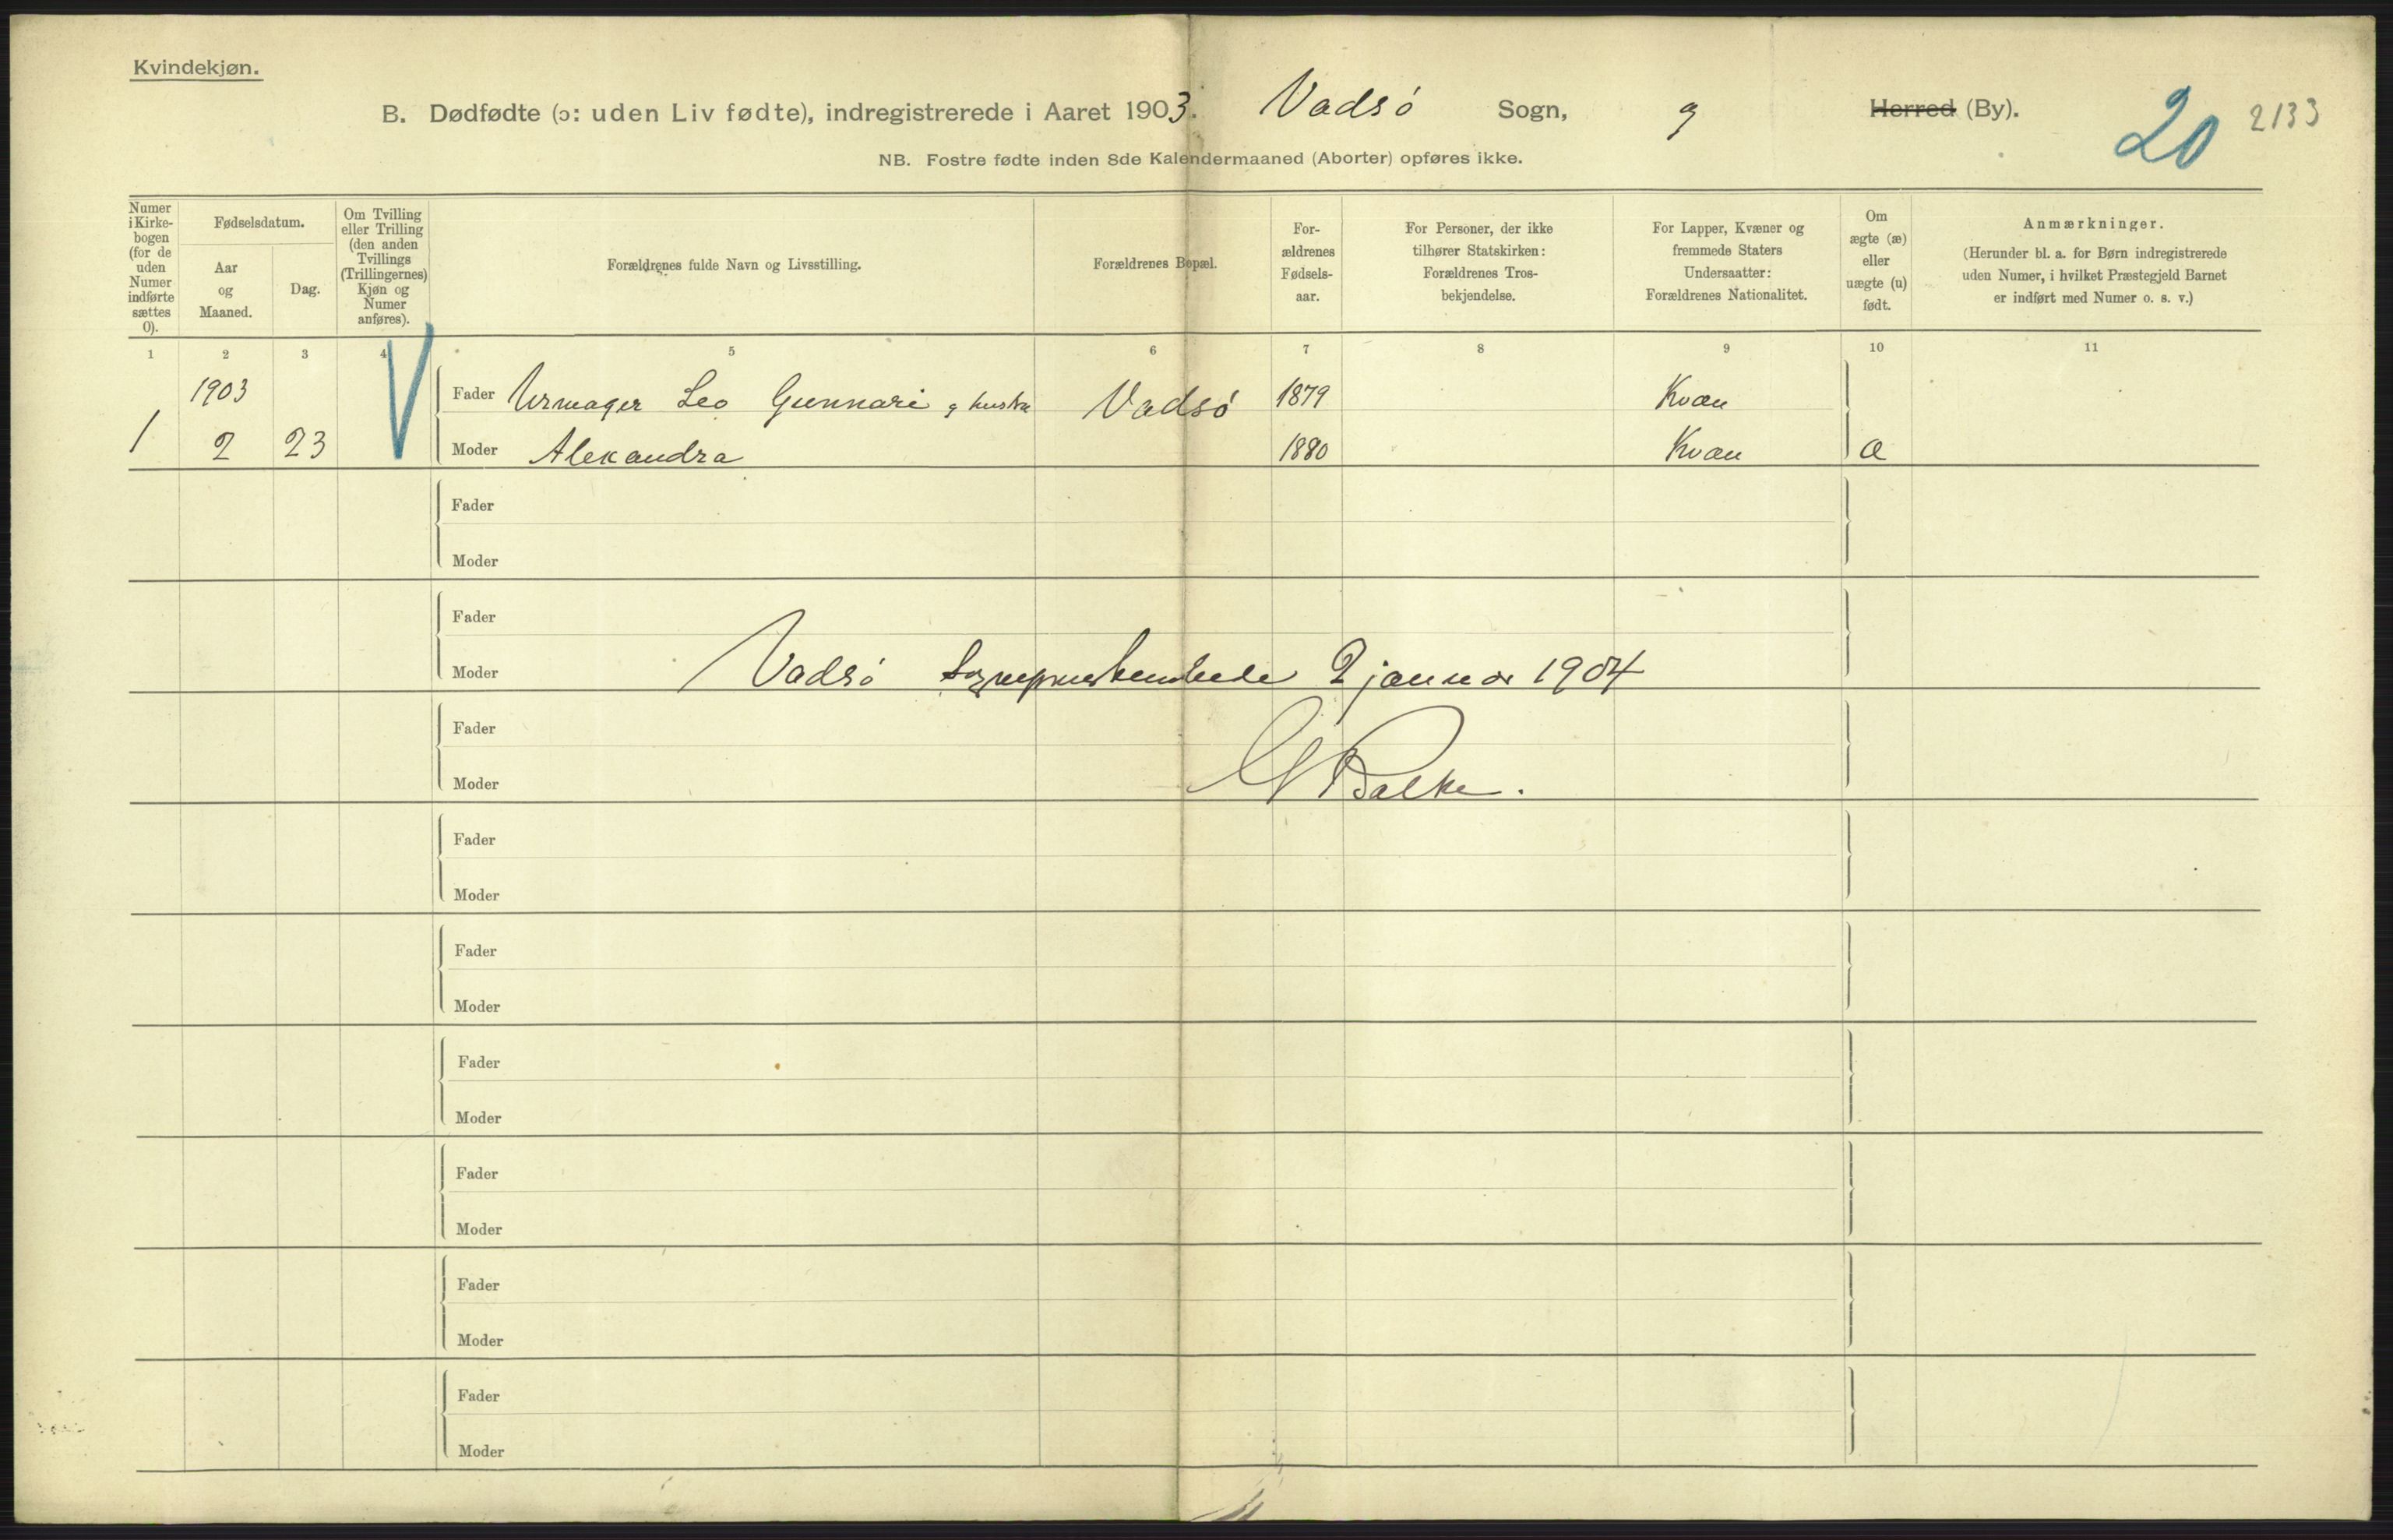 Kvindekjøn.
B. Dødfødte (ɔ: uden Liv fødte), indregistrerede i Aaret 1903. Vadsó Sogn, Herred (By).
20 2133
NB. Fostre fødte inden 8de Kalendermaaned (Aborter) opføres ikke.
Numer i Kirke-bogen (for de uden Numer indførte sættes 0).
Fødselsdatum.
Aar og Maaned.
Dag.
Om Tvilling eller Trilling (den anden Tvillings (Trillingernes) Kjøn og Numer anføres).
Forældrenes fulde Navn og Livsstilling.
Forældrenes Bopæl.
For-ældrenes Fødsels-aar.
For Personer, der ikke tilhører Statskirken: Forældrenes Tros-bekjendelse.
For Lapper, Kvæner og fremmede Staters Undersaatter: Forældrenes Nationalitet.
Om ægte (æ) eller uægte (u) født.
Anmærkninger. (Herunder bl. a. for Børn indregistrerede uden Numer, i hvilket Præstegjeld Barnet er indført med Numer o. s. v.)
1 2 3 4 5 6 7 8 9 10 11
1903 Fader Urmager Leo Gunnari g hustru Vadsó 1879 Kvæn
1 2 23 Moder Alexandra 1880 Kvæn æ
Fader
Moder
Fader
Moder Vadsó 2 januar 1904
Fader
Moder Balke.
Fader
Moder
Fader
Moder
Fader
Moder
Fader
Moder
Fader
Moder
Fader
Moder